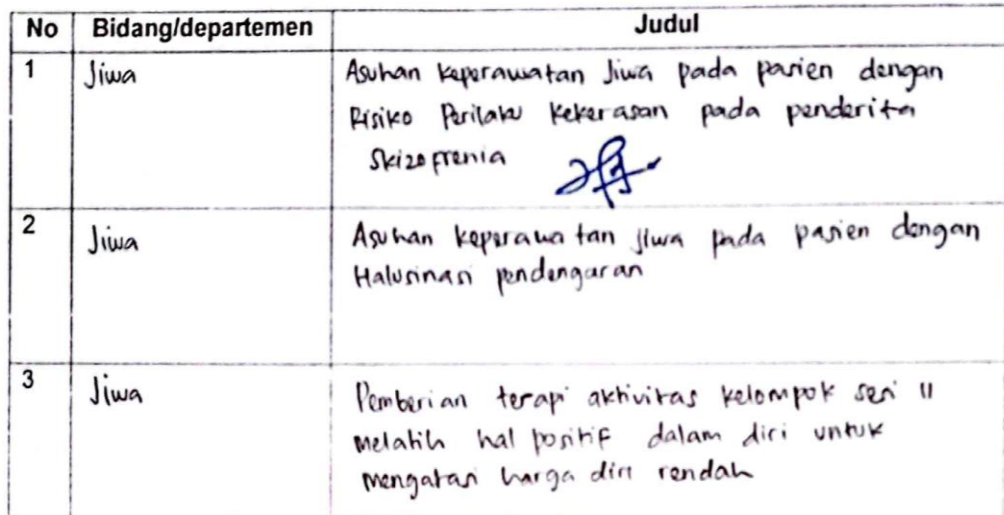 No Bidang/departemen Judul
1 Jiwa Asuhan keperawatan Jiwa pada pasien dengan
Risiko Perilaku kekerasan pada penderita
Skizofrenia
2 Jiwa Asuhan keperawatan jiwa pada pasien dengan
Halusinasi pendengaran
3 Jiwa Pemberian terapi aktivitas kelompok sesi II
melatih hal positif dalam diri untuk
mengatasi harga diri rendah